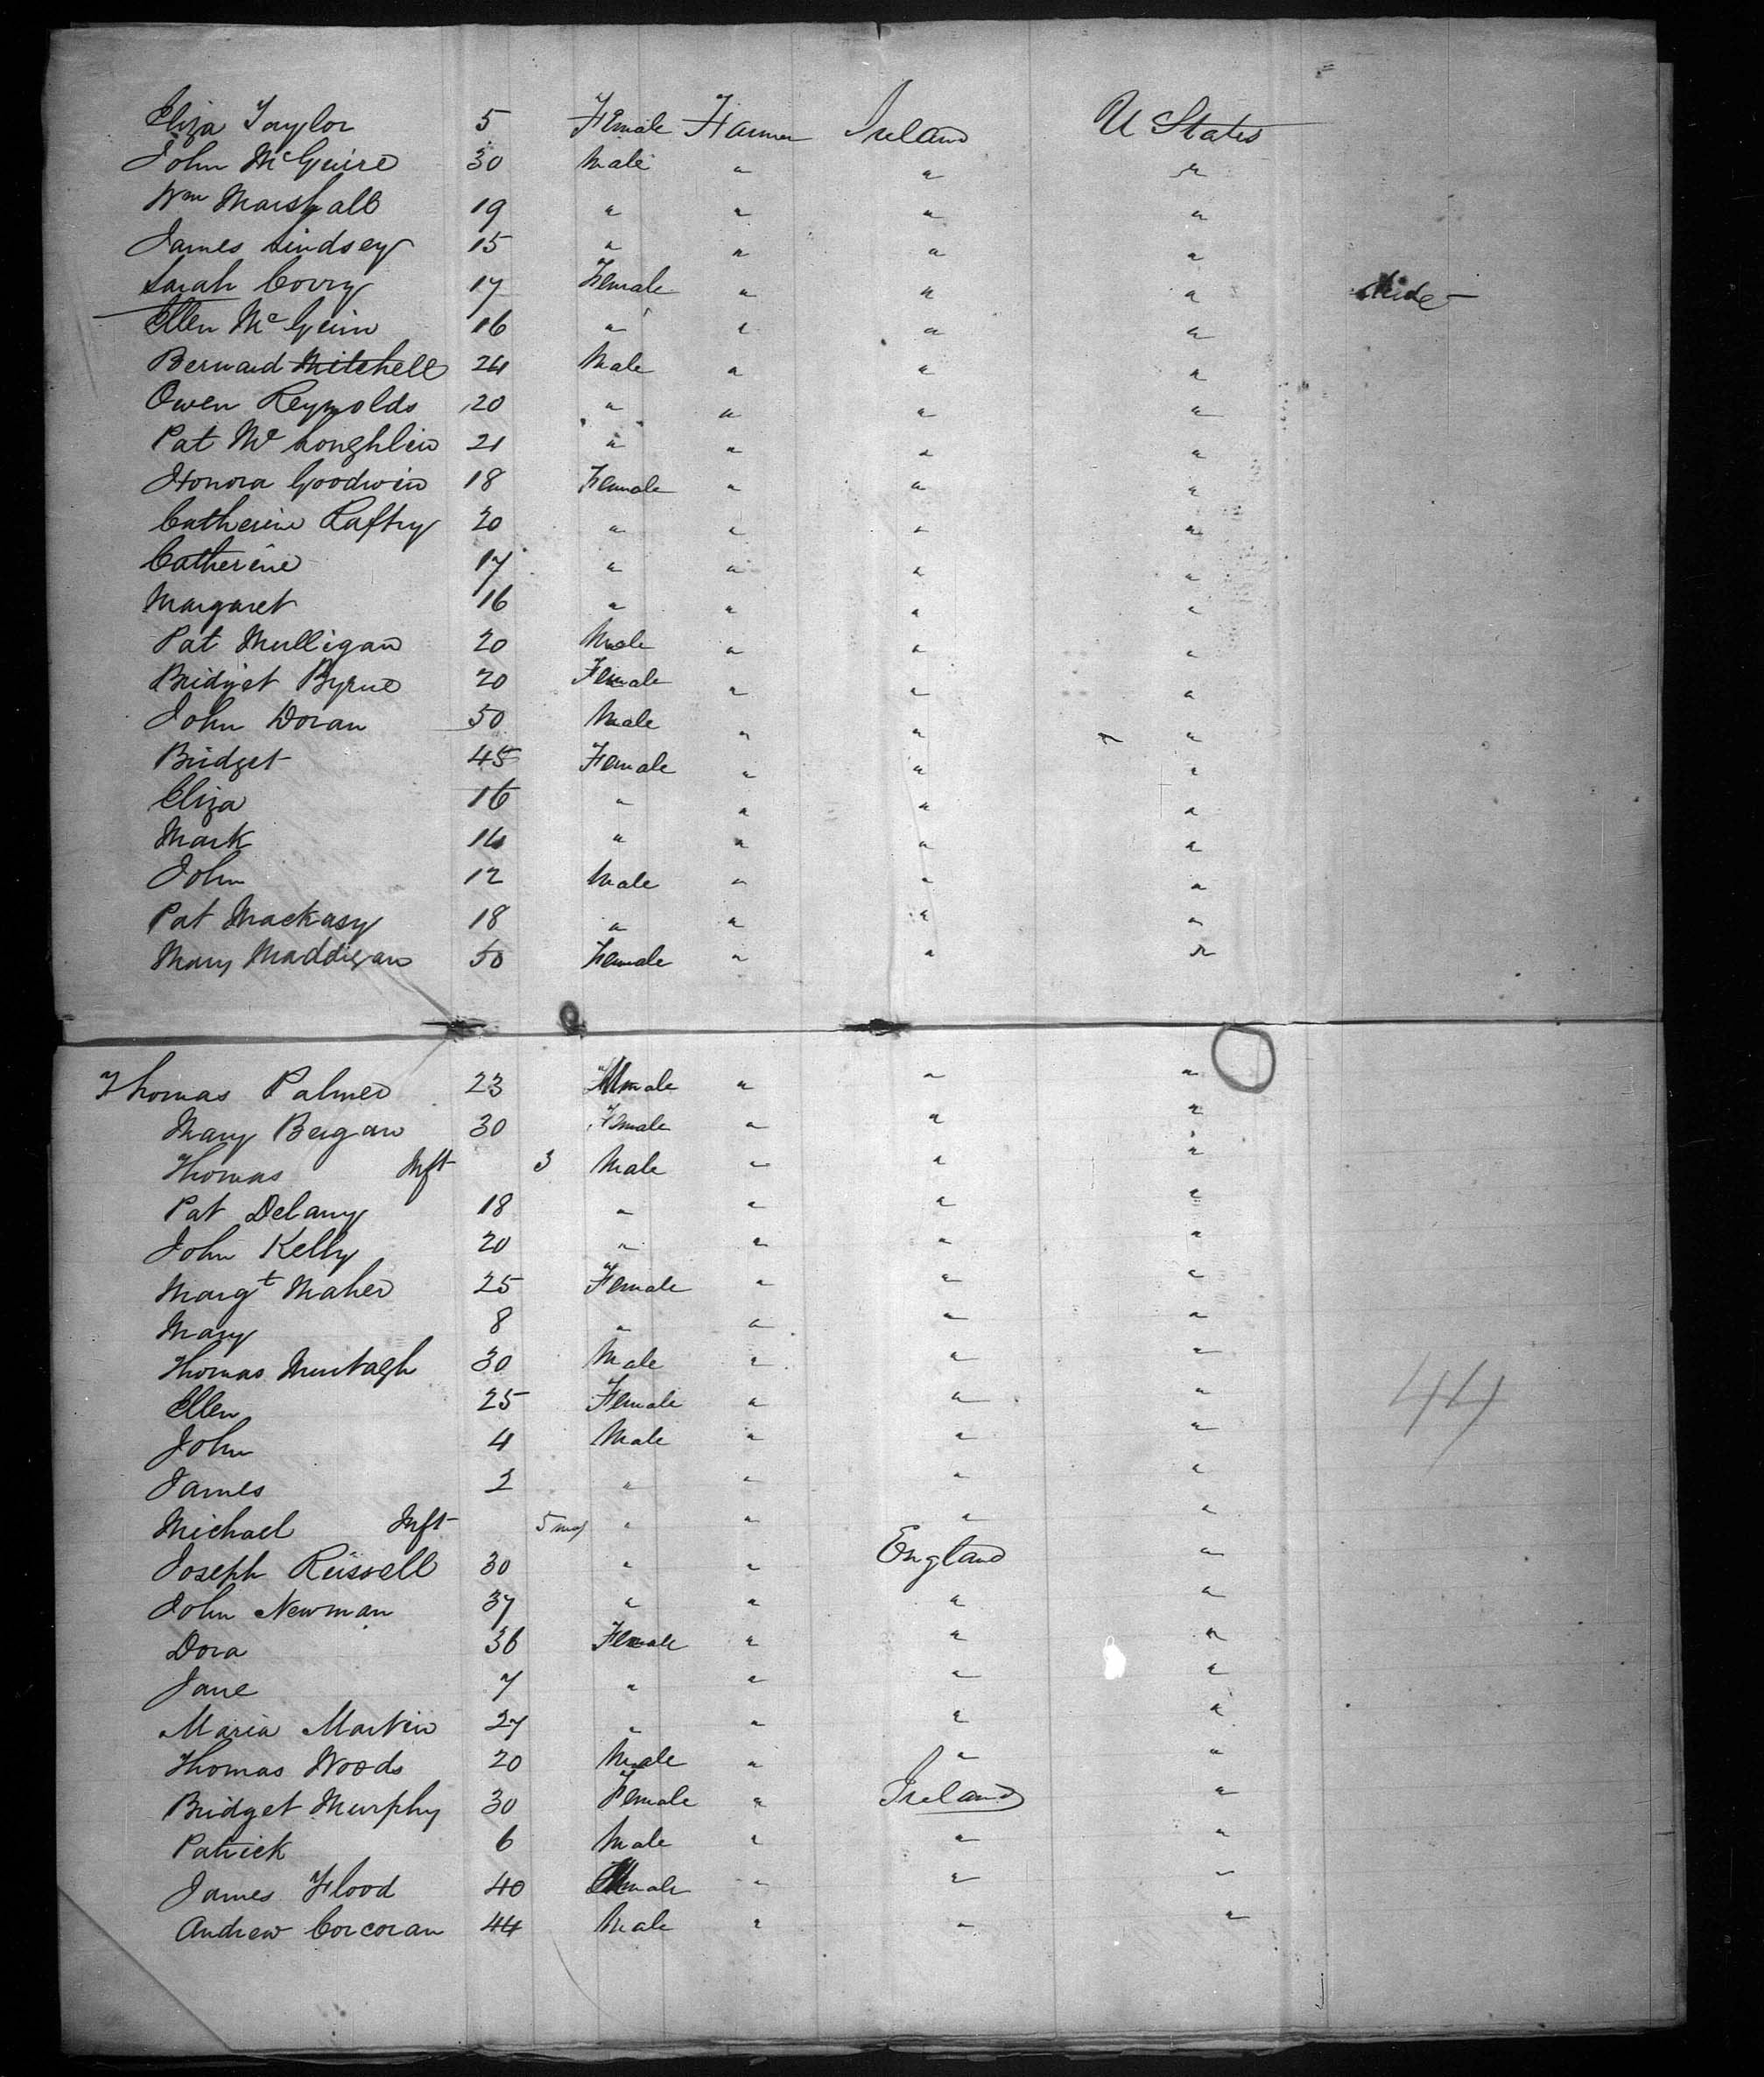 Eliza Taylor 5 Female Farmer Ireland U States
John McGuire 30 Male " " "
Wm Marshall 19 " " " "
James Lindsey 15 " " " "
Sarah Corry 17 Female " " "
Ellen McGuin 16 " " " "
Bernard Mitchell 24 Male " " "
Owen Reynolds 20 " " " "
Pat McLoughlin 21 " " " "
Honora Goodwin 18 Female " " "
Catherine Raftry 20 " " " "
Catherine 17 " " " "
Margaret 16 " " " "
Pat Mulligan 20 Male " " "
Bridget Byrne 20 Female " " "
John Doran 50 Male " " "
Bridget 45 Female " " "
Eliza 16 " " " "
Mark 14 " " " "
John 12 Male " " "
Pat Mackasy 18 " " " "
Mary Maddigan 50 Female " " "
Thomas Palmer 23 Male " " "
Mary Bergan 30 Female " " "
Thomas Inft 3 Male " " "
Pat Delany 18 " " " "
John Kelly 20 " " " "
Margt Maher 25 Female " " "
Mary 8 " " " "
Thomas Murtagh 30 Male " " "
Ellen 25 Female " " "
John 4 Male " " "
James 2 " " " "
44
Michael Inft 5 mos " " " "
Joseph Russell 30 " " England "
John Newman 37 " " " "
Dora 36 Female " " "
Jane 7 " " " "
Maria Martin 27 " " " "
Thomas Woods 20 Male " " "
Bridget Murphy 30 Female " Ireland "
Patrick 6 Male " " "
James Flood 40 Male " " "
Andrew Corcoran 44 Male " " "